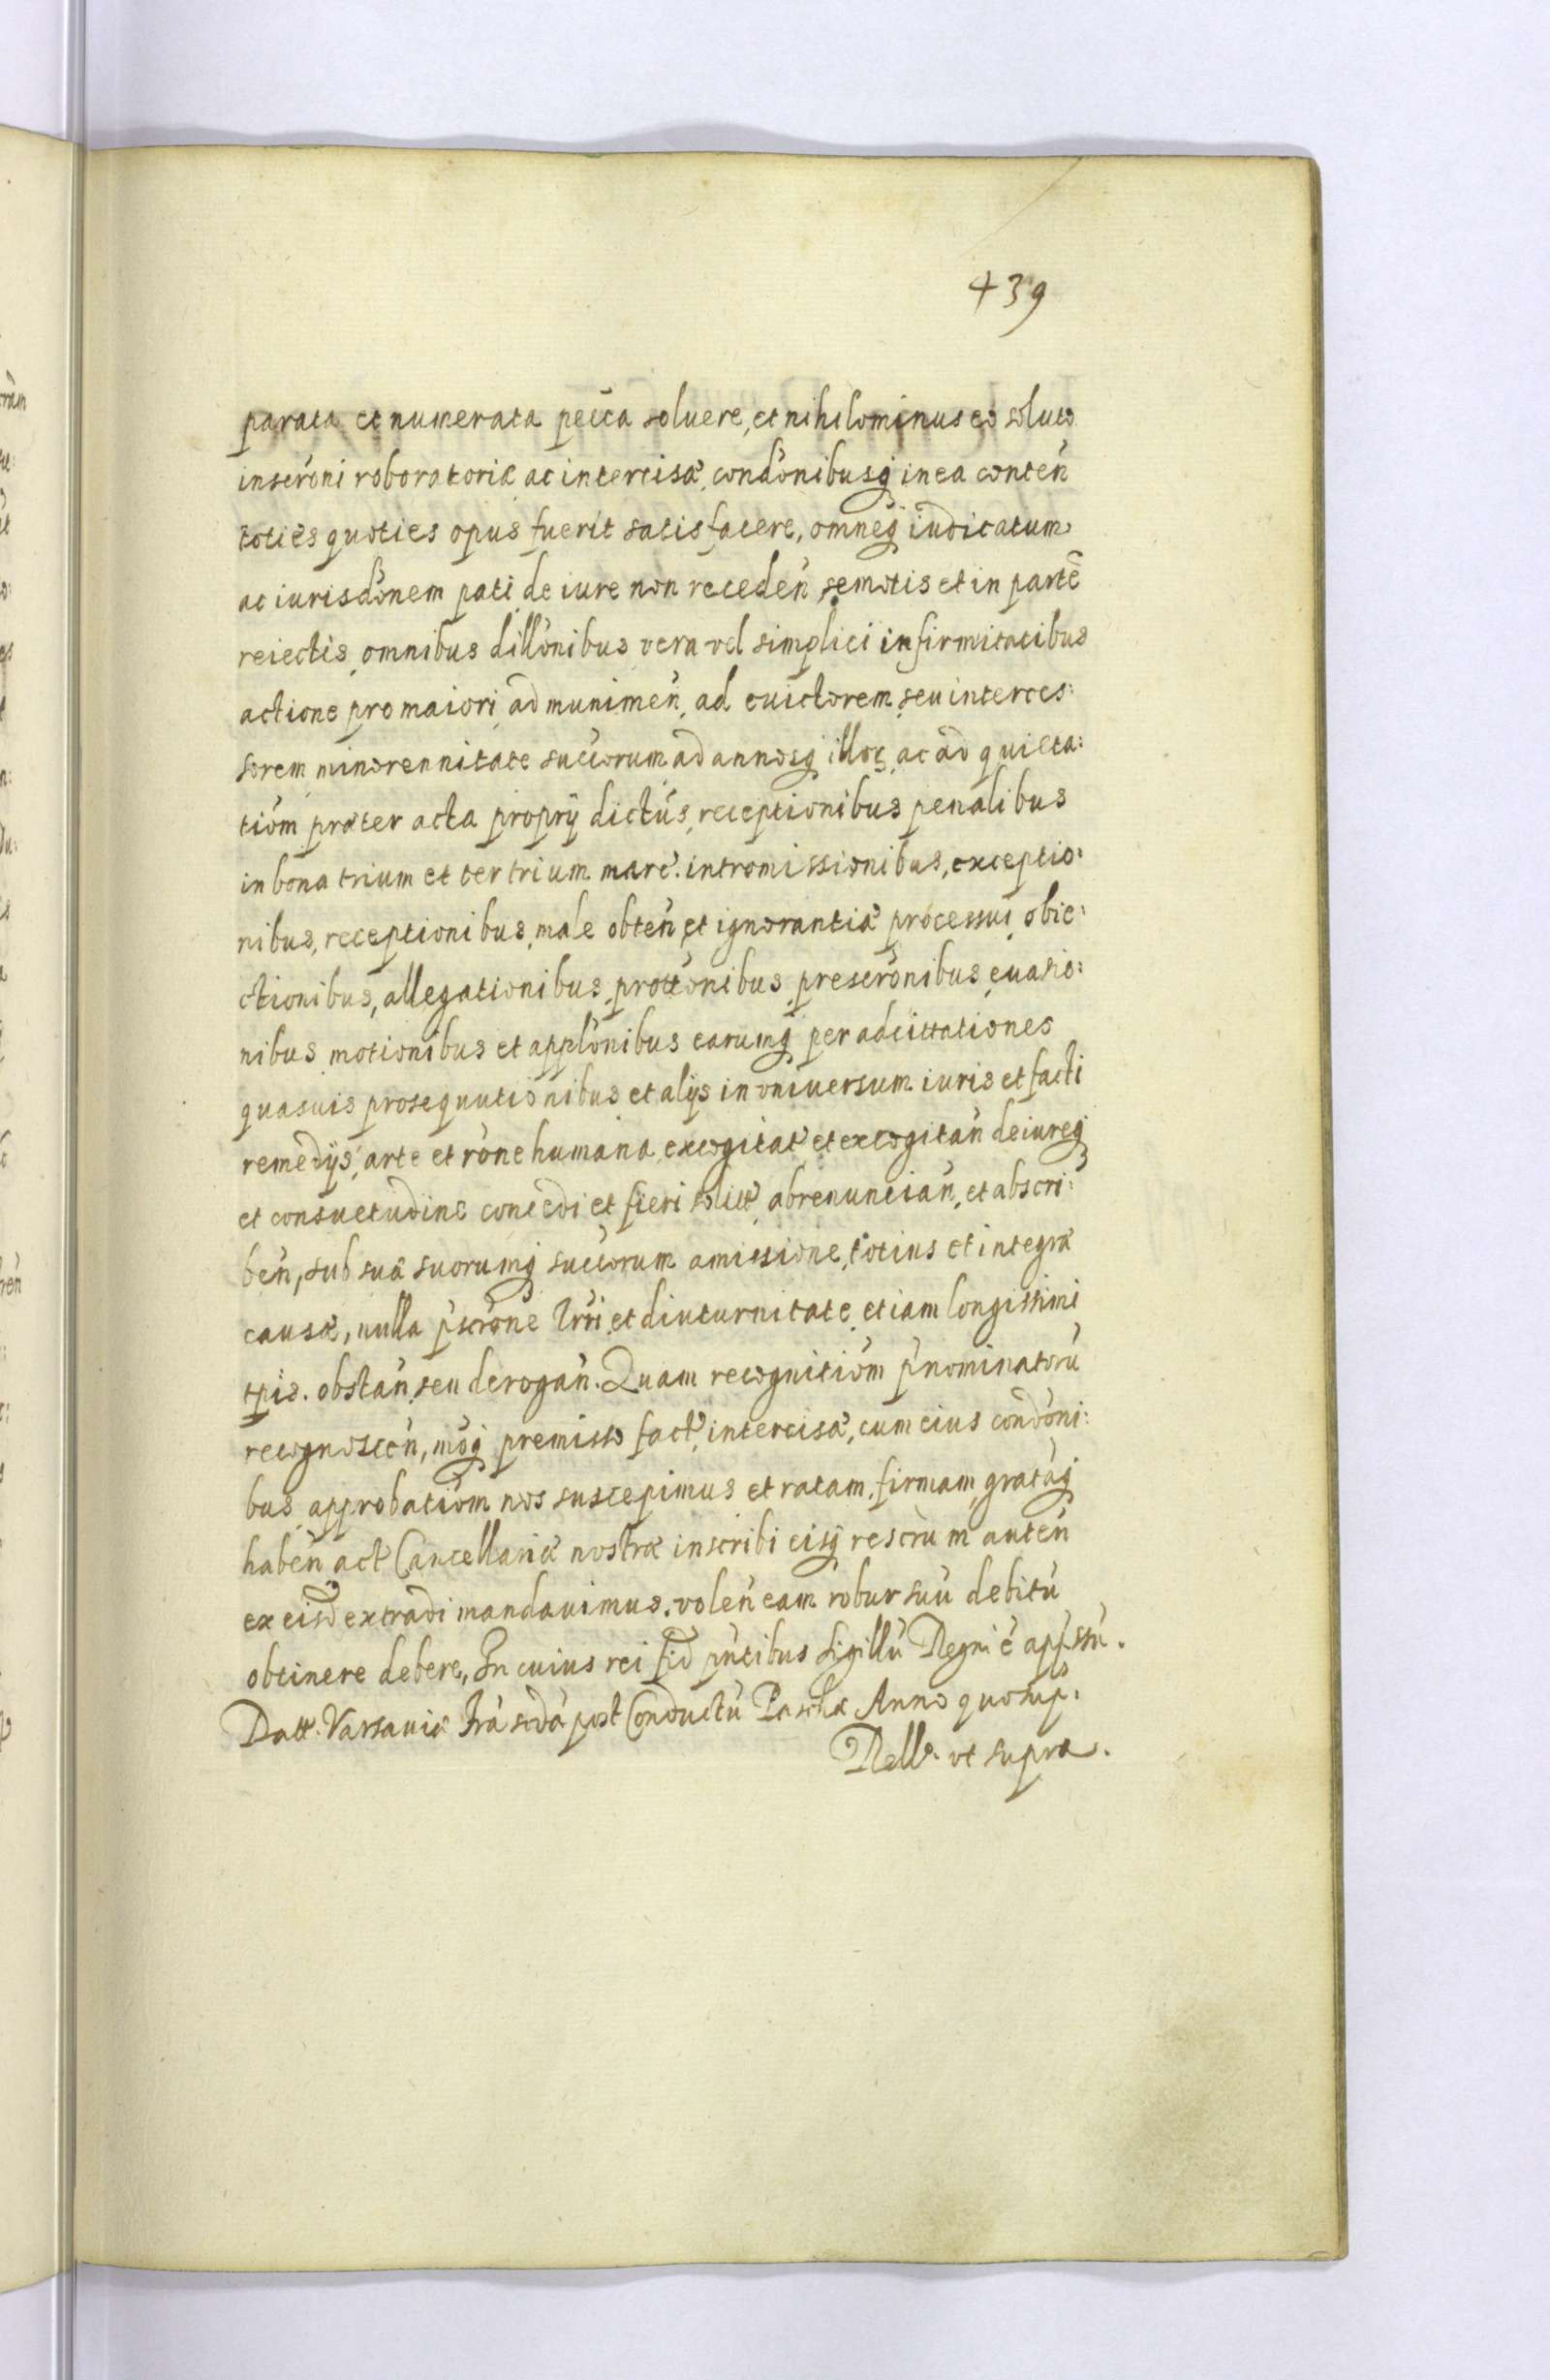 439
parata et numerata pec̃ca soluere, et nihilominus eo soluto
inscrõni roboratoriæ ac intercisæ, condõnibusq in ea conteñ
toties quoties opus fuerit satisfacere, omneq iudicatum
ac iurisdõnem pati de iure non recedeñ semotis et in partẽ
reiectis omnibus dillõnibus vera vel simplici infirmitatibus
actione pro maiori ad munimeñ, ad euictorem seu interces:
sorem minorennitate succorum ad annosq illor, ac ad quieta:
tiõm præter acta proprij dictús, receptionibus penalibus
in bona trium et ter trium marc. intromissionibus, exceptio:
nibus, receptionibus, male obteñ et ignorantiæ processus, obie:
ctionibus, allegationibus, prottõnibus, prescrõnibus, euasio:
nibus, motionibus et applõnibus earumq per adcittationes
quasuis prosequutionibus et alijs in vniuersum iuris et facti
remedijs, arte et rõne humana excogitat et excogitañ de iureq
et consuetudine concedi et fieri solitt abrenuncian̄, et abscri:
beñ, sub suæ suorumq succorum amissione, totius et integræ
causæ, nulla p̃scrõne Trri et diuturnitate etiam longissimi
tpis. obstañ seu derogañ. Quam recognitiõm p̃nominatorũ
recognosceñ, mõq premisso fact intercisæ, cum eius condõni:
bus approbatiõm nos suscepimus et ratam, firmam, gratãq
habeñ act Cancellariæ nostræ inscribi eisq rescrũm auteñ
ex eisd extradi mandauimus. voleñ eam robur suũ debitũ
obtinere debere, In cuius rei fid p̃ntibus Sigillũ Regni ẽ appssũ.
Datt. Varsauiæ fra sc̃da post Conductũ Paschæ Anno quo sup.
Rell. vt supra.